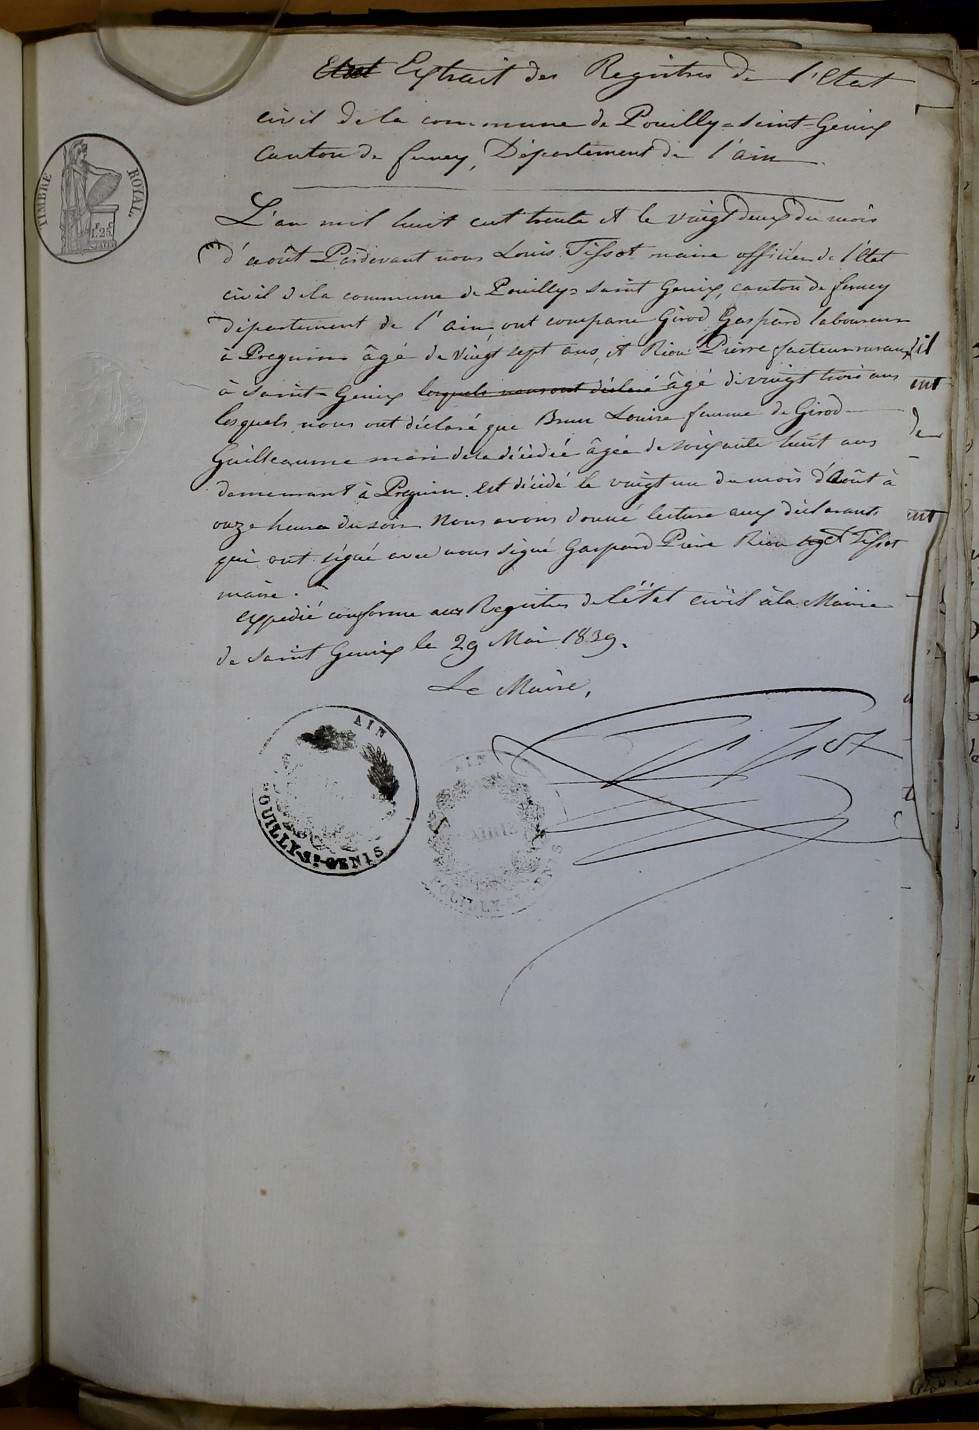 Extrait des Registres de l'Etat
civil de la commune de Pouilly-saint-Genix
Canton de ferney, Département de l'ain
TIMBRE ROYAL
1f. 25
L'an mil huit cent trente et le vingt deux du mois
d'août Pardevant nous Louis Tissot maire officier de l'état
civil de la commune de Pouilly-saint Genix, canton de ferney
département de l'ain, ont comparu Girod Gaspard laboureur
à Pregnin âgé de vingt sept ans, et Rion Pierre facteur rural
à saint-Genix lesquels nous ont déclaré âgé de vingt trois ans
lesquels nous ont déclaré que Brun Louise femme de Girod
Guilleaume mari de la décédée âgée de soixante huit ans
demeurant à Pregnin est décédé le vingt un du mois d'août à
onze heures du soir Nous avons donné lecture aux déclarants
qui ont signé avec nous signé Gaspard Pierre Rion et Tissot
maire.
Expédié conforme aux Registres de l'état civil à la Mairie
de saint Genix le 29 Mai 1839.
Le Maire,
Tissot
AIN
POUILLY-St-GENIS
AIN
MAIRIE
POUILLY-St-GENIS